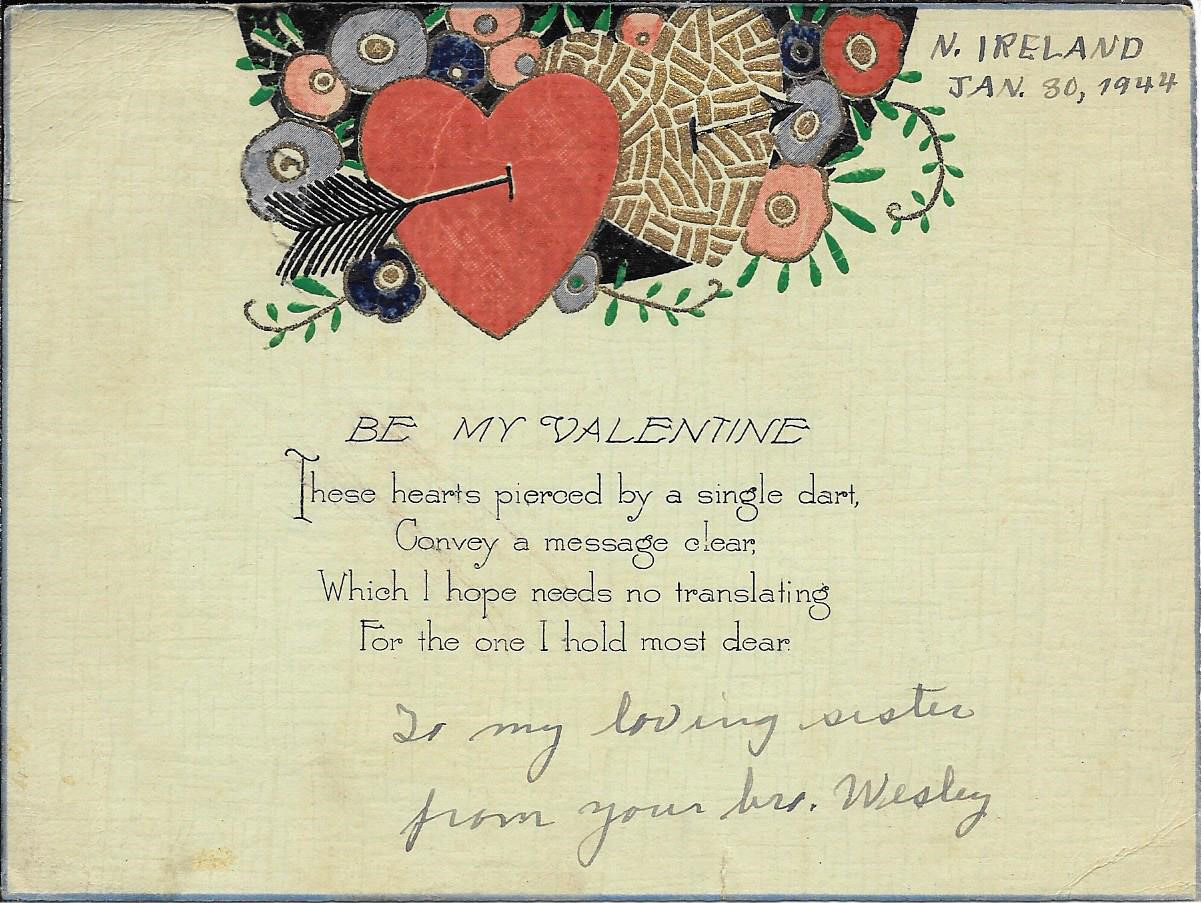 N. IRELAND
JAN. 30, 1944
BE MY VALENTINE
These hearts pierced by a single dart,
Convey a message clear,
Which I hope needs no translating
For the one I hold most dear.
To my loving sister
from your bro. Wesley